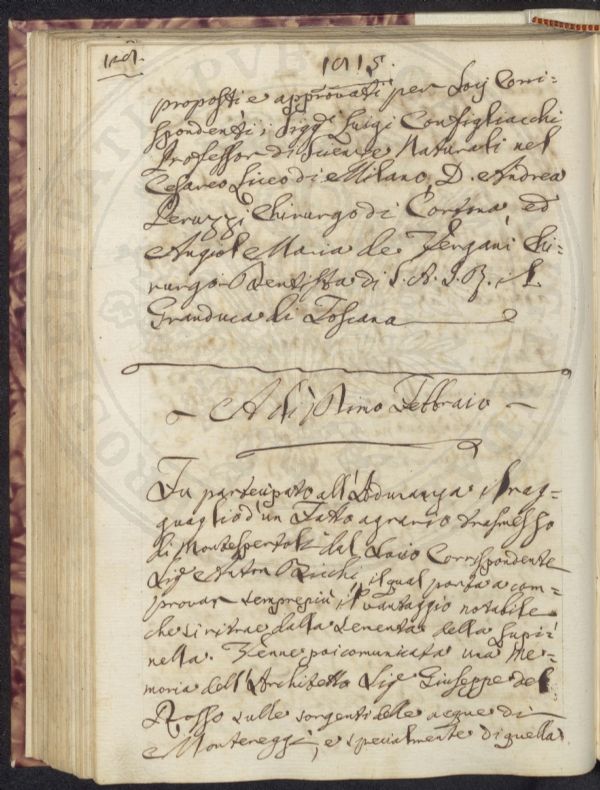 1815.
proposti e approvati per Socj Corri=
spondenti i Sigg.i Luigi Configliacchi
Professor di Scienze Naturali nel
Cesareo Liceo di Milano, D. Andrea
Peruzzi Chirurgo di Cortona, ed
Angiol Maria de Vergani Chi=
rurgo Dentista di S. A. I. R. il
Granduca di Toscana
A dì Primo Febbraio
Fu partecipato all'Adunanza il rag=
guaglio d'un Fatto agrario trasmesso
di Montespertoli dal Socio Corrispondente
Sig.e Ricchi, il qual porta a com=
provar sempre più il vantaggio notabile
che si ritrae dalla sementa della Lupi=
nella. Venne poi comunicata una Me=
moria dell'Architetto Sig.e Giuseppe del
Rosso sulle sorgenti delle acque di
Montereggi, e specialmente di quella